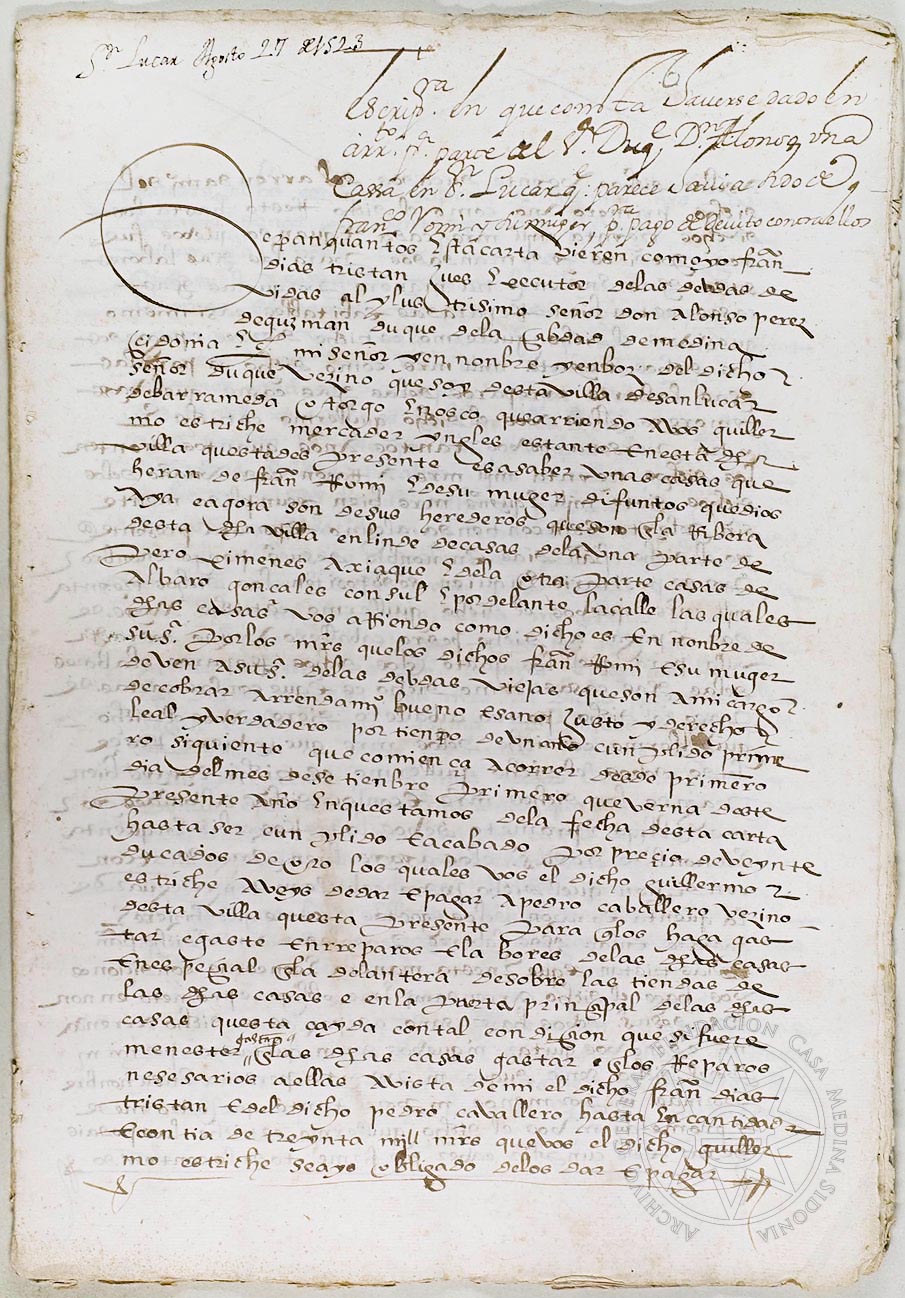 Sn Lucar Agosto 27 de 1523
escripra en que consta haverse dado en
arrto pr parte del Sr Duq Dn Alonso, una
Cassa en Sn Lucar q parece havia sido de
franco Romi y su muger, pa pago de devito contra ellos
Sepan quantos esta carta vieren como yo fran
dias tristan Jues esecutor delas devdas de
vidas al ylustrisimo señor don alonso perez
deguzman duque dela cibdad de medina
cidonia mi señor y en nonbre y en boz del dicho
señor duque vezino que soy desta villa de sanlucar
debarrameda otorgo e conosco que arriendo a vos guiller
mo estriche mercader yngles estante en esta dha
villa questades presente es a saber unas casas que
heran de fran Romi e de su muger difuntos que dios
aya e agora son de sus herederos que son en la Ribera
desta dha villa en linde de casas dela una parte de
Pero ximenes axiaque e dela otra parte casas de
alvaro gonçales consul e por delante la calle las quales
dhas casas vos arriendo como dicho es en nonbre de
su s. por los mrs quelos dichos fran Romi e su muger
deven a su s. delas devdas viejas que son a mi cargo
de cobrar arrendamo bueno e sano Justo y derecho
leal y verdadero por tienpo de un año cunplido prime
ro siguiente que comiença a correr desde primero
dia del mes de setienbre primero que verna deste
presente año en questamos dela fecha desta carta
hasta ser cunplido e acabado por preçio de veynte
ducados de oro los quales vos el dicho guillermo
estriche aveys de dar e pagar a pedro cavallero vezino
desta villa questa presente para que los haga gas
tar e gaste en rreparos e labores delas dhas casas
en espeçial en la delantera de sobre las tiendas de
las dhas casas e en la puerta prinçipal delas dhas
casas questa cayda con tal condiçion que si fuere
menester gastar en las dhas casas gastar en los Reparos
nesesarios a ellas a vista de mi el dicho fran dias
tristan e del dicho pedro cavallero hasta en cantidad
e contia de treynta mill mrs que vos el dicho guiller
mo estriche seays obligado delos dar e pagar
ARCHIVO GENERAL FUNDACION CASA MEDINA SIDONIA